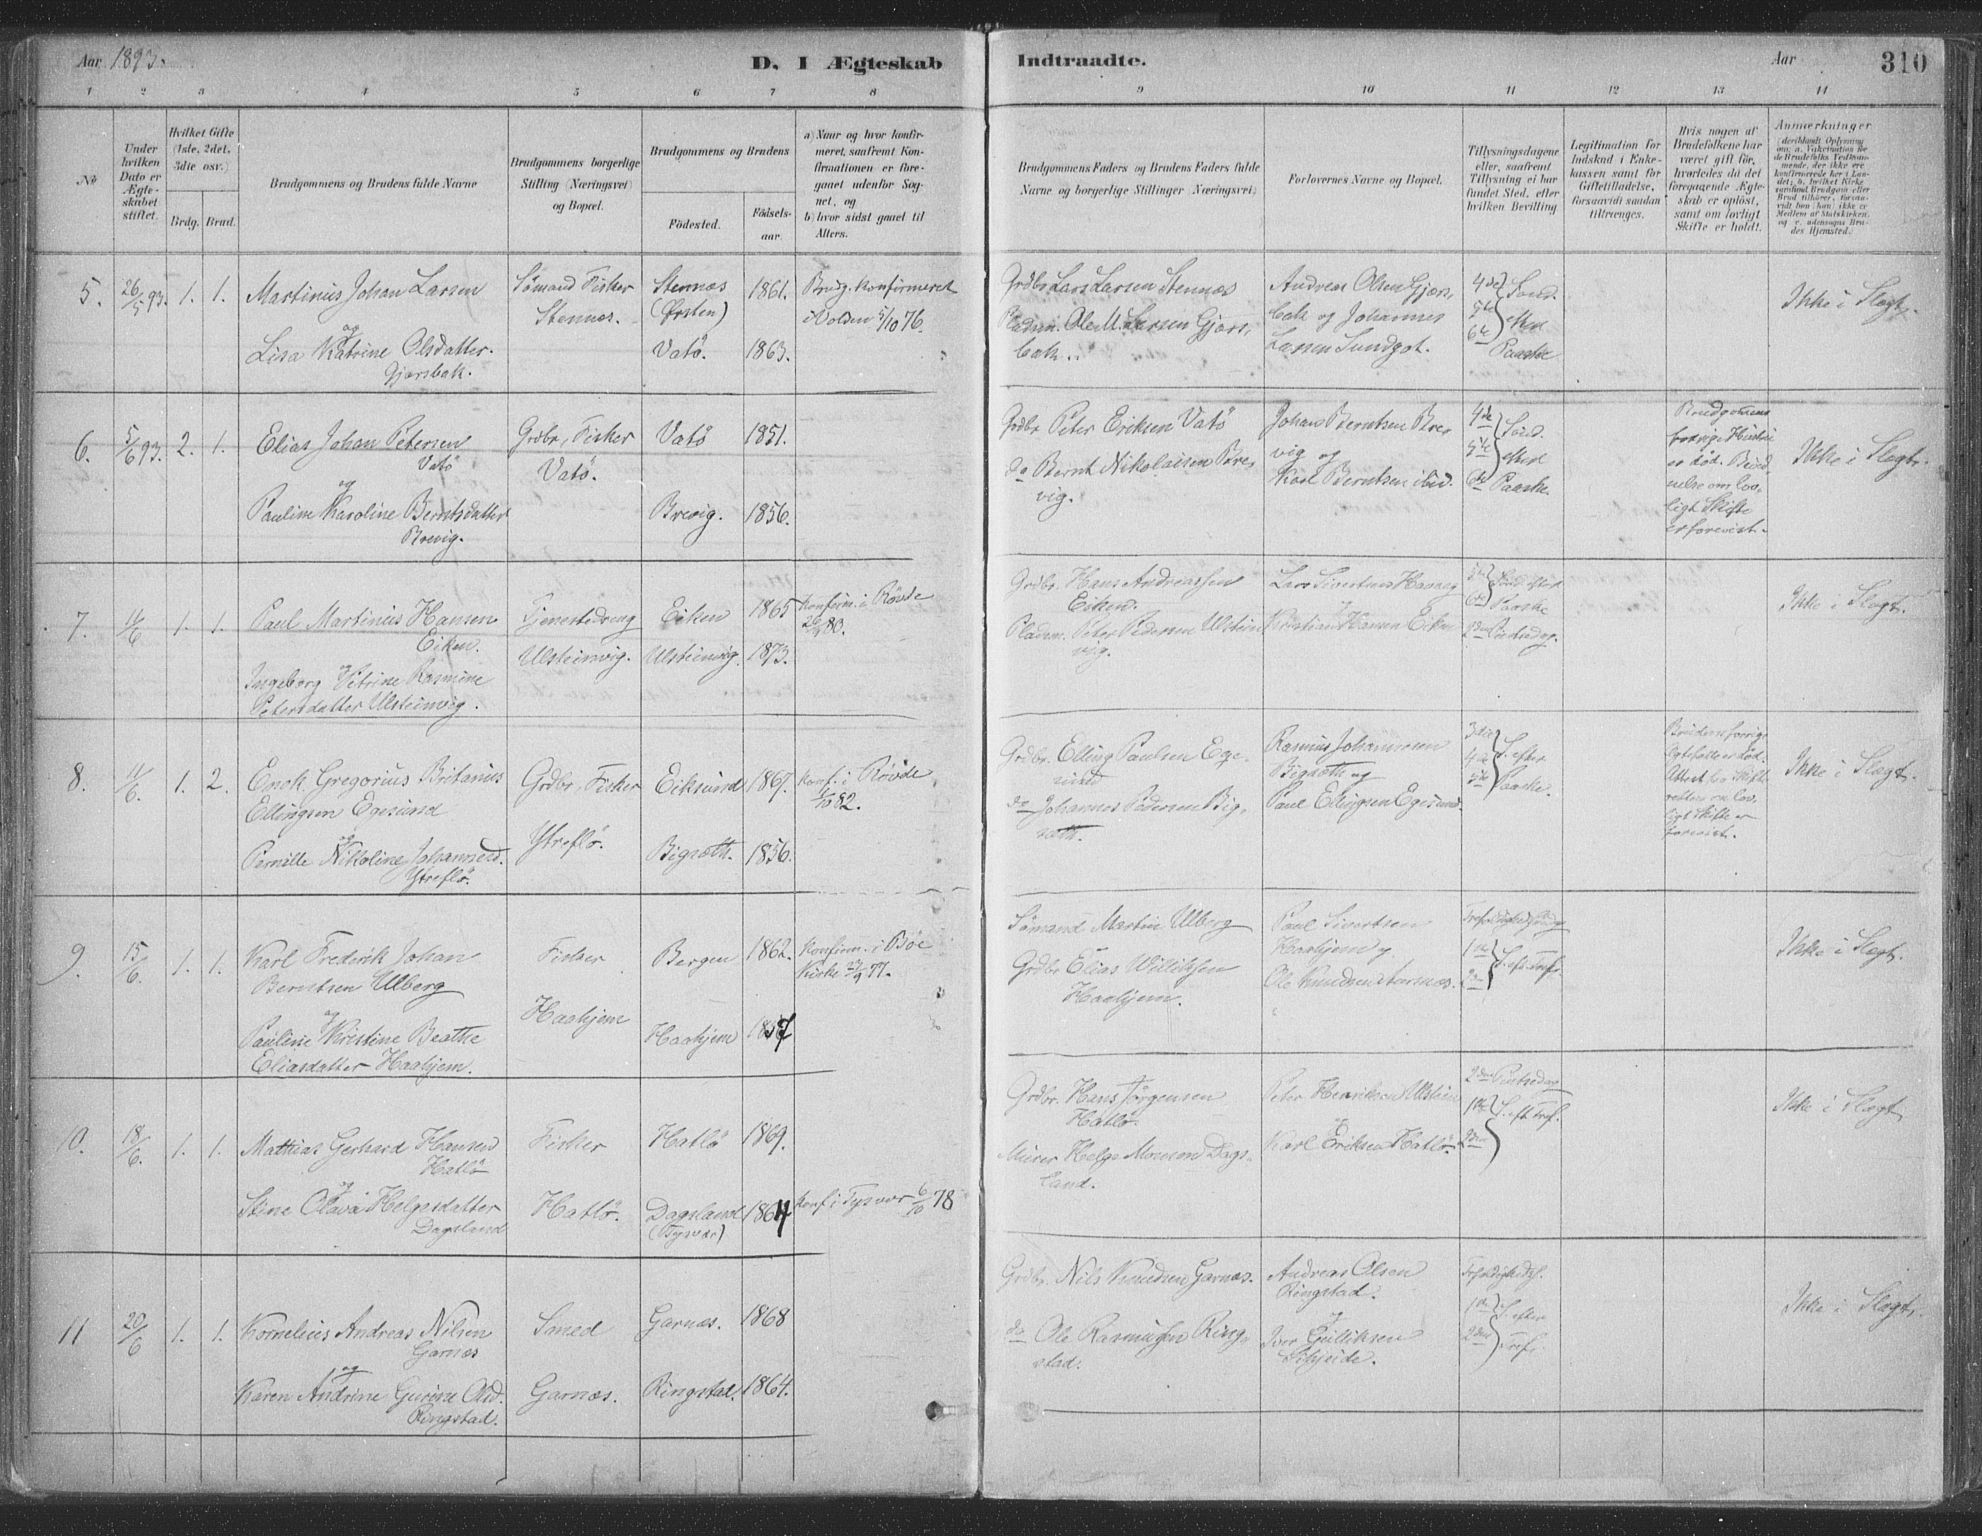 Aar 1893.
D. I Ægteskab Indtraadte.
Aar
310
1 2 3 4 5 6 7 8 9 10 11 12 13 14
No
Under hvilken Dato er Ægteskabet stiftet.
Hvilket Gifte (1ste, 2det, 3die osv.)
Brdg. Brud.
Brudgommens og Brudens fulde Navne
Brudgommens borgerlige Stilling (Næringsvei) og Bopæl.
Brudgommens og Brudens
Fødested.
Fødsels-aar.
a) Naar og hvor konfirmeret, saafremt Konfirmationen er foregaaet udenfor Sognet, og
b) hvor sidst gaaet til Alters.
Brudgommens Faders og Brudens Faders fulde Navne og borgerlige Stillinger (Næringsvei)
Forlovernes Navne og Bopæl.
Tillysningsdagene eller, saafremt Tillysning ei har fundet Sted, efter hvilken Bevilling
Legitimation for Indskud i Enkekassen samt for Giftetilladelse, forsaavidt saadan tiltrænges.
Hvis nogen af Brudefolkene har været gift før, hvorledes da det foregaaende Ægteskab er opløst, samt om lovligt Skifte er holdt.
Anmærkninger
5. 26/5 93. 1. 1.
Martinus Johan Larsen
og
Lisa Katrine Olsdatter
Gjørsbak.
Sømand Fisker
Stennæs.
Stennæs
(Ørsten)
Vatö.
1861.
1863.
Brudg. Konfirmeret
i Volden 5/10 76.
Grdbr Lars Larsen Stennæs
Pladsm. Ole M. Larsen Gjørs,
bak.
Andreas Olsen Gjørs,
bak og Johannes
Larsen Sundgot.
4de
5te
6te
Sønd.
efter
Paaske
Ikke i Slægt.
6. 5/6 93. 2. 1.
Elias Johan Petersen
Vatö
og
Pauline Karoline Berntsdatter
Brevig.
Grdbr, Fisker
Vatö.
Vatö
Brevig.
1851.
1856.
Grdbr Peter Eriksen Vatö
do Bernt Nikolaisen Bre,
vig.
Johan Berntsen Bre,
vig og
Karl Berntsen ibid.
4de
5te
6te
Sønd.
efter
Paaske.
Brudgommens
forrige Hustru
er død. Bevid
nelse om lov
ligt Skifte
er forevist.
Ikke i Slægt.
7. 11/6 1. 1.
Paul Martinus Hansen
Eiken.
og
Ingeborg Vitrine Rasmine
Petersdatter Ulsteinvig.
Tjenestedreng
Ulsteinvig.
Eiken
Ulsteinvig.
1865
1873.
Konfirm. i Rövde
80.
Grdbr. Hans Andreassen
Eiken.
Pladsm. Peter Pedersen Ulstein
vig.
Lars Sivertsen
og
Kristian Hansen Eiken
6te
Sønd. efter
Paaske
2den Pintsedag.
Ikke i Slægt.
8. 11/6. 1. 2.
Enok Gregorius Britanius
Ellingsen Egesund
og
Pernille Nikoline Johannesd.
Ytreflö.
Grdbr, Fisker
Ytreflö.
Eiksund
Bigsæth.
1867.
1856.
Konf. i Rövde
1/10 82.
Grdbr. Elling Paulsen Ege
sund
do Johannes Pedersen Big,
sæth.
Rasmus Johannesen
Bigsæth og
Paul Ellingsen Egesund.
3die
4de
5te
S. efter
Paaske.
Brudens forrige
Ægtefælle er død.
Attest fra Skifte
retten om lov,
ligt Skifte er
forevist.
Ikke i Slægt.
9. 15/6. 1. 1.
Karl Frederik Johan
Berntsen Ulberg
og
Pauline Kristine Beathe
Eliasdatter Haahjem.
Fisker
Haahjem
Bergen
Haahjem
1862.
1857
Konfirm. i Bøe
Kirke 77.
Sømand Martin Ulberg
Grdbr Elias Williksen
Haahjem.
Paul Sivertsen
Haahjem og
Ole Knudsen
1ste
2den
S. eft. Tref.
Ikke i Slægt.
10. 18/6. 1. 1.
Mathias Gerhard Hansen
Hatlö
og
Stine Olava Helgesdatter
Dagsland
Fisker
Hatlö.
Hatlö
Dagsland
(Tysvær)
1869.
1864
Konf. i Tysvær 6/10 78
Grdbr. Hans Jørgensen
Hatlö.
Murer Helge Monsen Dags,
land.
Peter Henriksen Ulstein
og
Karl Eriksen Hatlö.
2den Pintsedag
1ste
2den
S. eft. Tref.
Ikke i Slægt.
11 20/6 1. 1.
Kornelius Andreas Nilsen
Garnæs
og
Karen Andrine Gurine Olsd.
Ringstad.
Smed
Garnæs.
Garnæs.
Ringstad.
1868
1864.
Grdbr. Nils Knudsen Garnæs.
do Ole Rasmussen Ring,
stad.
Andreas Olsen
Ringstad.
og
Iver Gulliksen
1ste
2den
S. efter
Tref.
Ikke i Slægt.